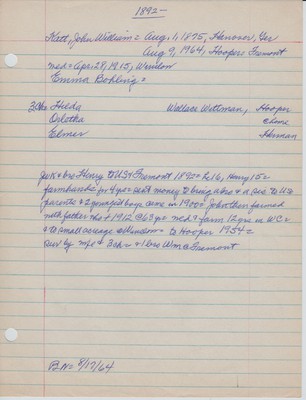 1892-
Kett, John William = Aug. 1, 1875, Hanover, Ger
Aug 9, 1964, Hooper, Fremont
med = Apr. 28, 1915, Winslow
Emma Bohling =
3 ch Hilda Wallace Wittman, Hooper
Orletha @home
Elmer Herman
JWK & bro Henry to US & Fremont 1892 = he 16, Henry 15 =
farmhands for 4 yr = sent money to bring a bro & a sis to US
parents & 2 youngest boys came in 1900 = John then farmed
with father
& to small acreage @Winslow = to Hooper 1954 =
surv by wife & 3 ch & 1 bro Wm @ Fremont
BN = 8/17/64